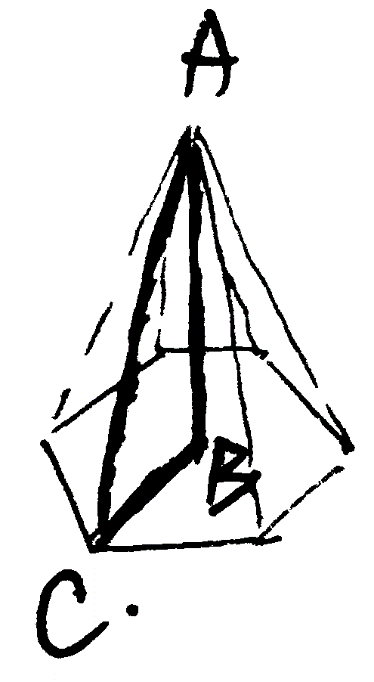 A
B
C.